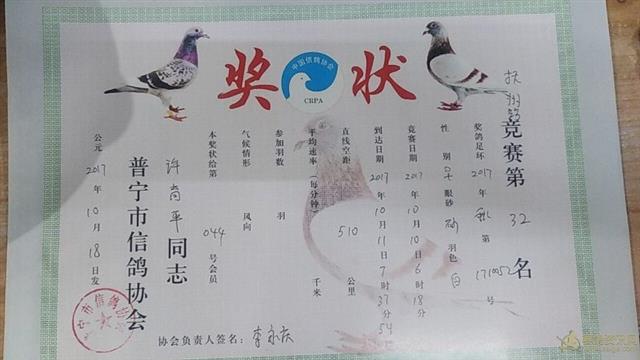 奖状
中国信鸽协会
CRPA
竞赛第 32 名
奖鸽足环 2017 年 第 1710052 号
性别 眼砂 砂 羽色 白
竞赛日期 2017 年 10 月 10 日 6 时 18 分
到达日期 2017 年 10 月 11 日 7 时 37 分 54
直线空距 510 公里
平均速率（每分钟） 千米
参加羽数 羽
气候情形 风向
本奖状给第 044 号会员
许尚平 同志
普宁市信鸽协会
公元 2017 年 10 月 18 日发
协会负责人签名：李永庆